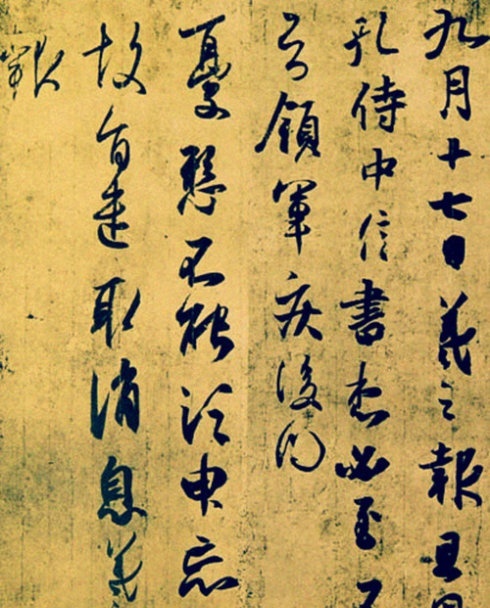 九月十七日羲之報且因
孔侍中信書想必至不
知領軍疾後問
憂懸不能須臾忘
故旨遣取消息羲之
報